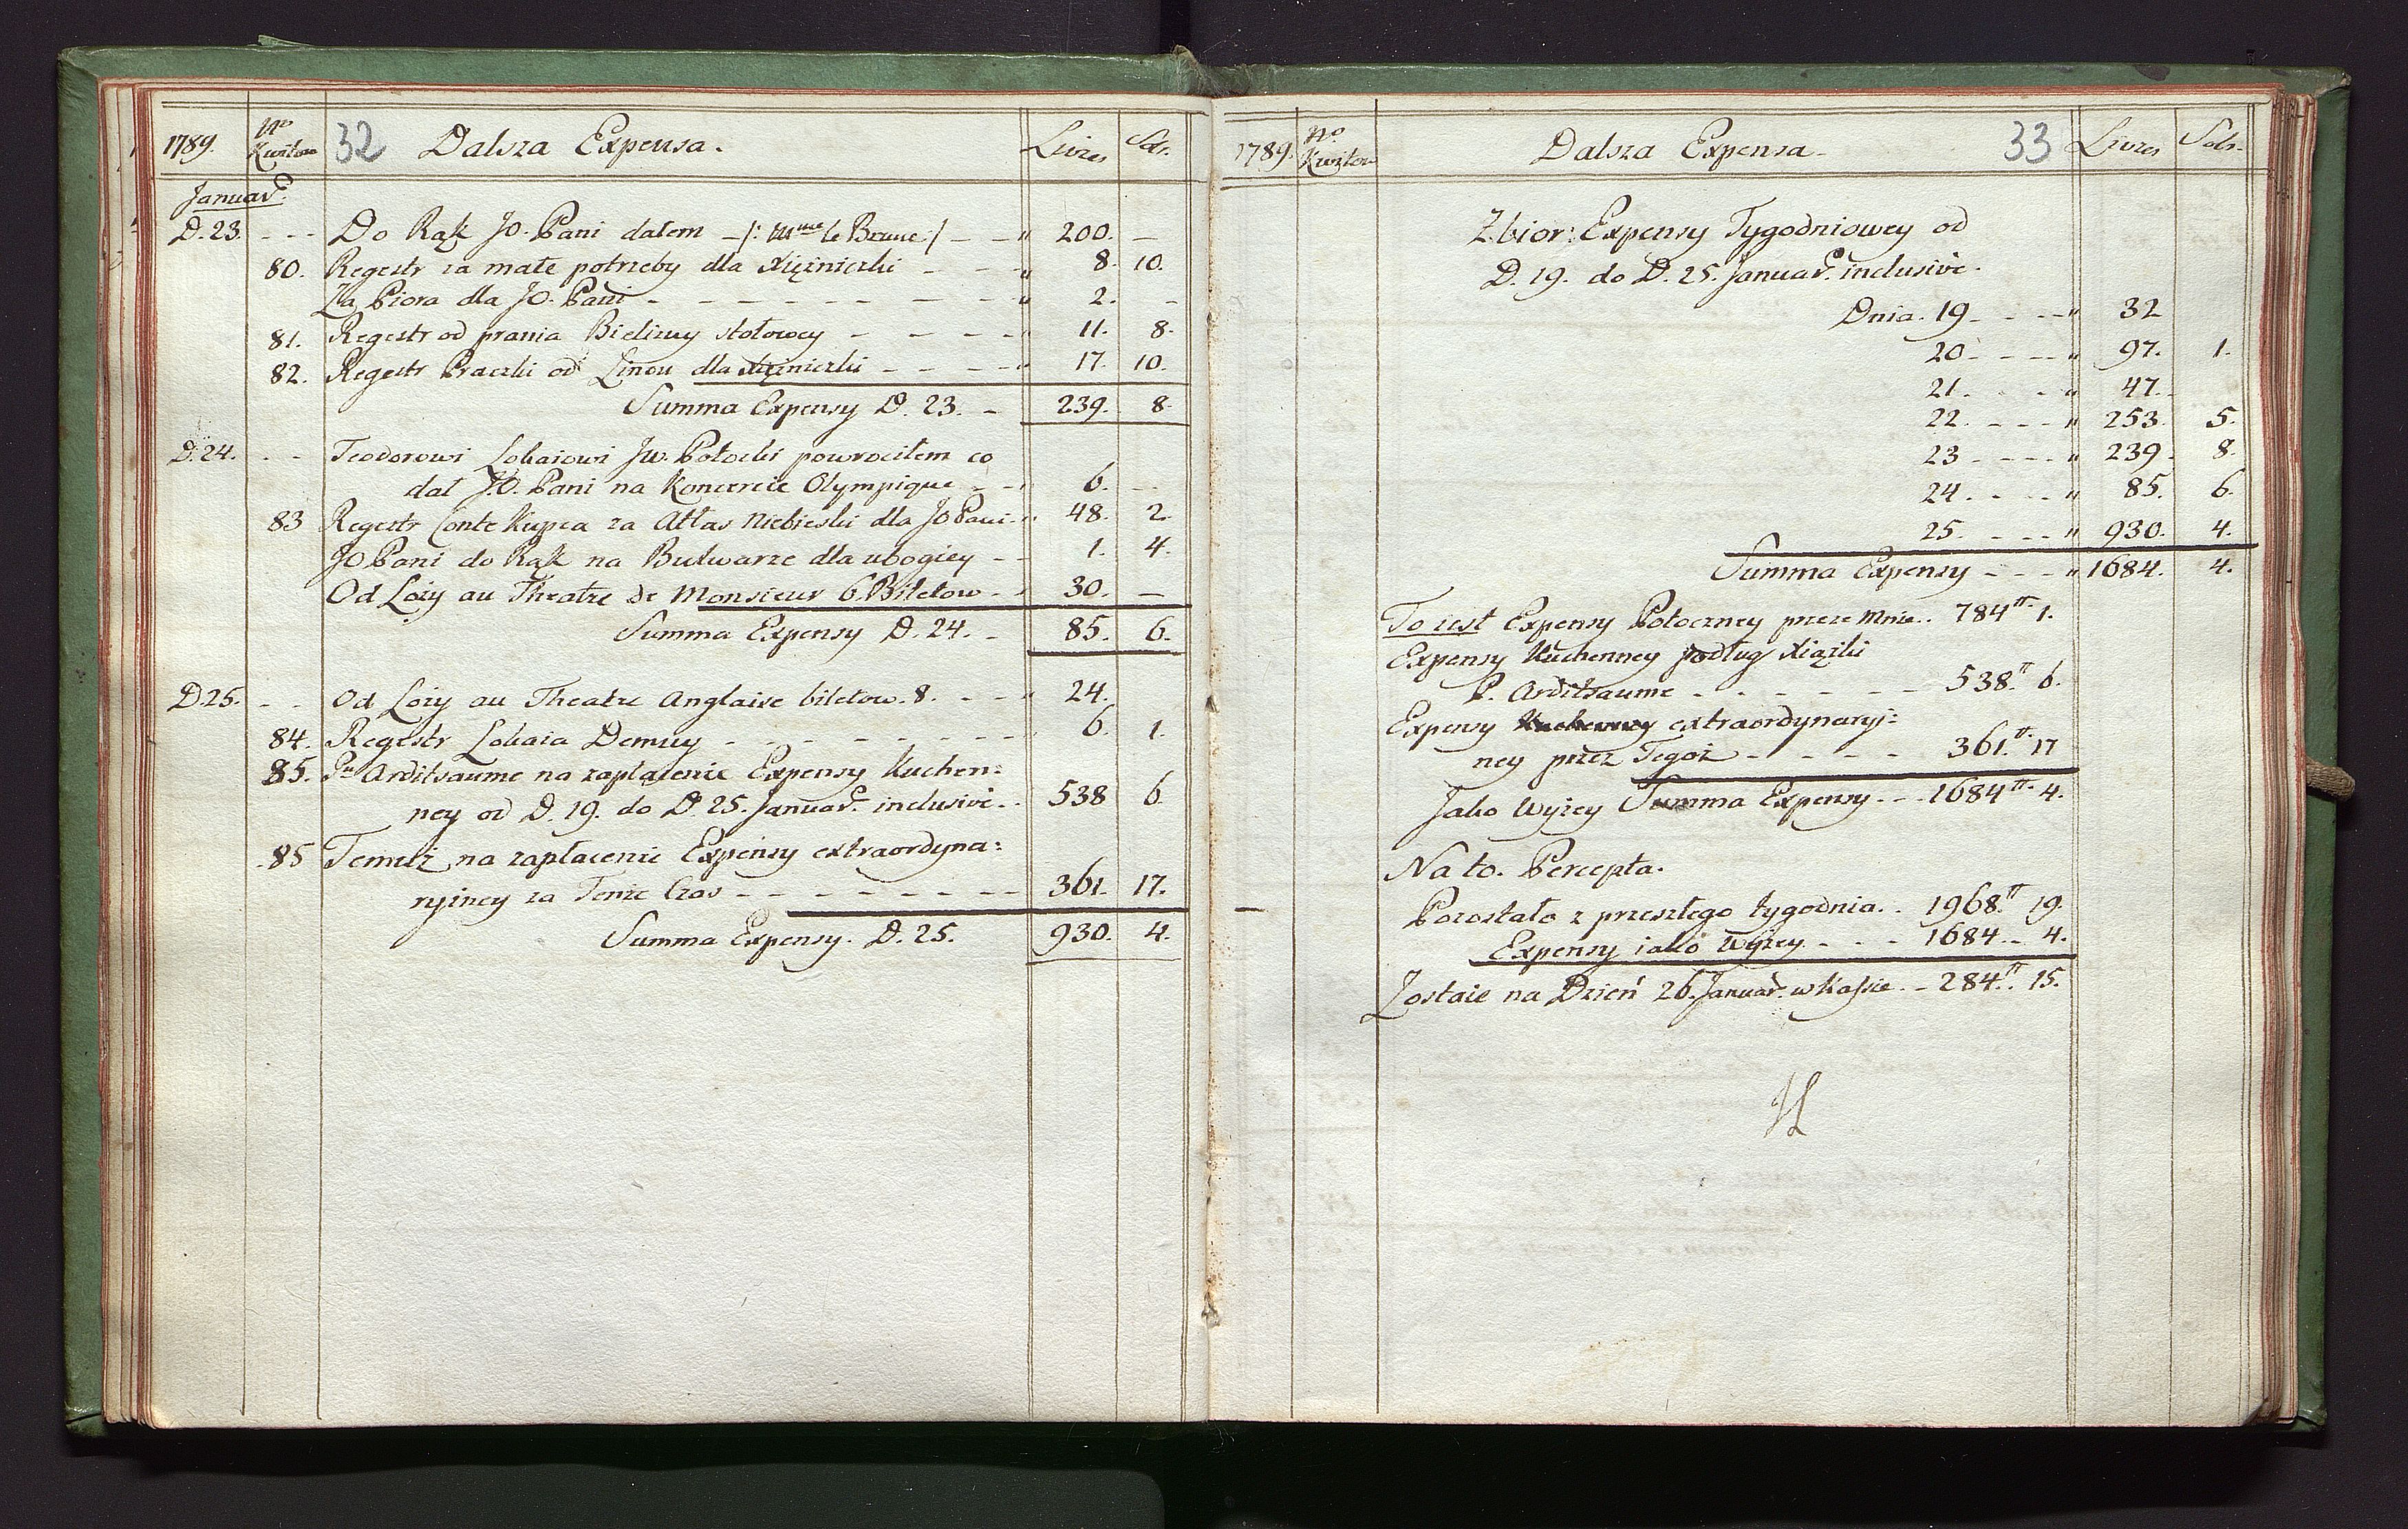 1789. No Kwitow 32 Dalsza Expensa. Livres Sols.
Januar.
D. 23. - - - Do Rąk JO. Pani dałem - /: Mme le Brune :/ - - " 200. -
80. Regestr za małe potrzeby dla Xiężniczki - - - " 8. 10.
Za Piora dla JO. Pani - - - - - - - - " 2. -
81. Regestr od prania Bielizny stołowey - - - - " 11. 8.
82. Regestr Praczki od Linou dla Xiężniczki - - - - " 17. 10.
Summa Expensy D. 23. - 239. 8.
D. 24. - - Teodorowi Lokaiowi JW. Potocki powrociłem co
dał J.O. Pani na Koncercie Olympique - - " 6. -
83 Regestr Conte Kupca za Atłas Niebieski dla JO Pani. " 48. 2.
JO Pani do Rąk na Bulwarze dla ubogiey - - 1. 4.
Od Loży au Theatre de Monsieur 6. Biletow - " 30. -
Summa Expensy D. 24. - 85. 6.
D. 25. - - Od Loży au Theatre Anglaise biletow. 8. - - " 24.
84. Regestr Lokaia Demuy - - - - - - - - - 6. 1.
85. Pu Arditsaume na zapłacenie Expensy Kuchen:
ney od D. 19. do D. 25. Januar. inclusive. - 538 6.
85 Temuż na zapłacenie Expensy extraordyna:
ryiney za Tenże Czas - - - - - - - - 361. 17.
Summa Expensy. D. 25. 930. 4.
1789. No. Kwitow Dalsza Expensa. 33 Livres Sols.
Zbior: Expensy Tygodniowey od
D. 19. do D. 25. Januar. inclusive.
Dnia. 19. - - - " 32
20. - - - " 97. 1.
21. - - - " 47.
22. - - - " 253. 5.
23 - - - - " 239. 8.
24. - - - " 85. 6.
25. - - - " 930. 4.
Summa Expensy - - - " 1684. 4.
To iest Expensy Potoczney przeze Mnie.. 784tt 1.
Expensy Kuchenney podług Xiążki
P. Arditsaume - - - - - - 538.tt 6.
Expensy Kuchenney extraordynaryi:
ney przez Tegoż - - - - 361.tt 17
Jako Wyżey Summa Expensy - - 1684tt. 4.
Na to. Percepta.
Pozostało z przeszłego tygodnia.. 1968.tt 19.
Expensy iako Wyżey - - - 1684.. 4.
Zostaie na Dzień 26. Januar. w Kassie. - 284.tt 15.